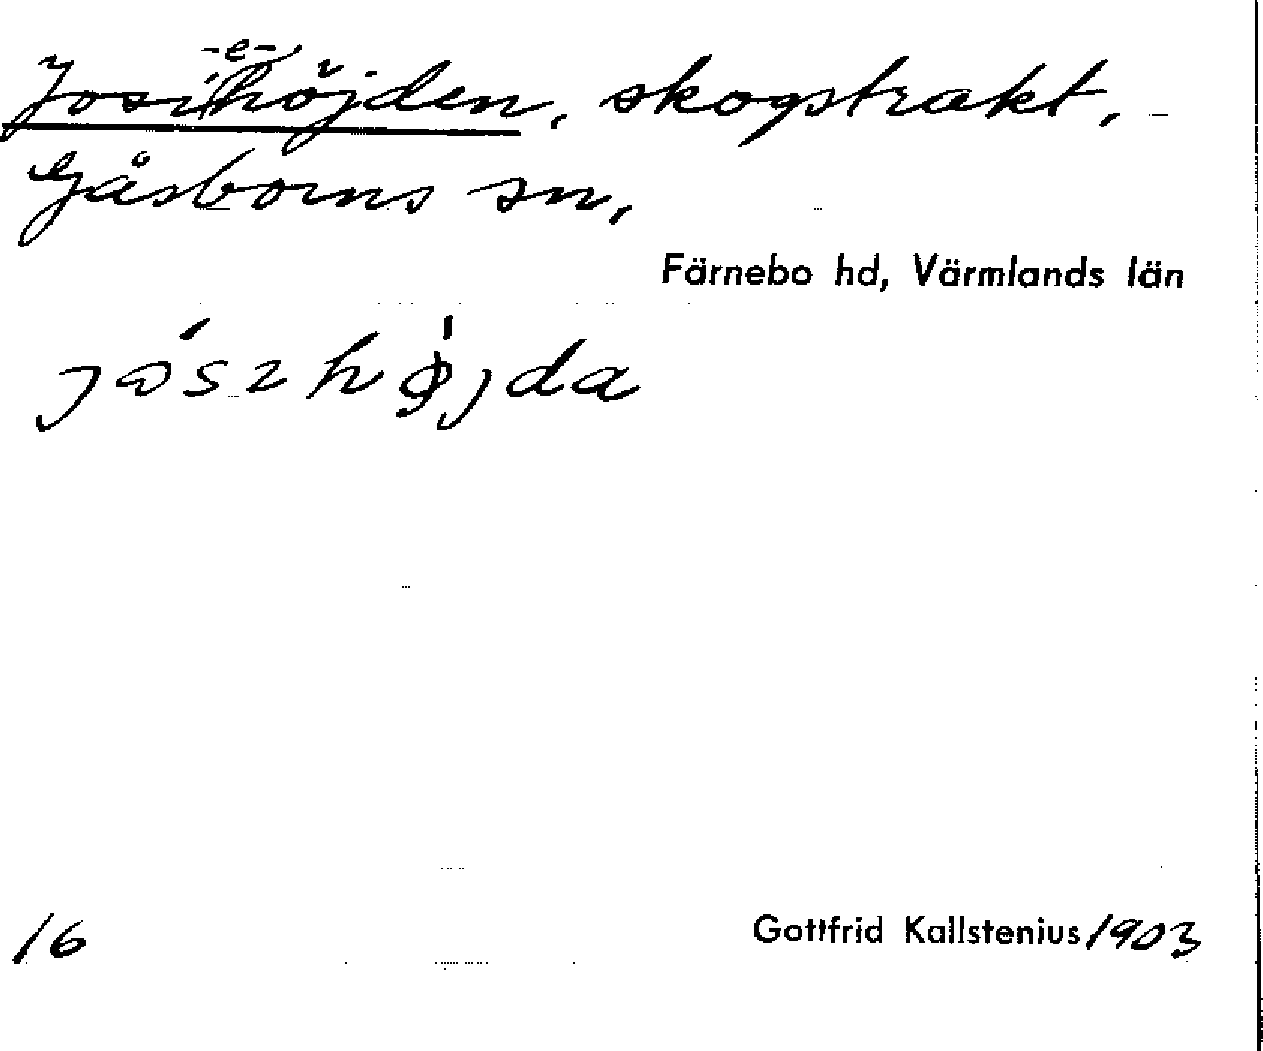 -e-
Josihöjden, skogstrakt, -
Gåsborns sn,
Färnebo hd, Värmlands län
16
Gottfrid Kallstenius 1903